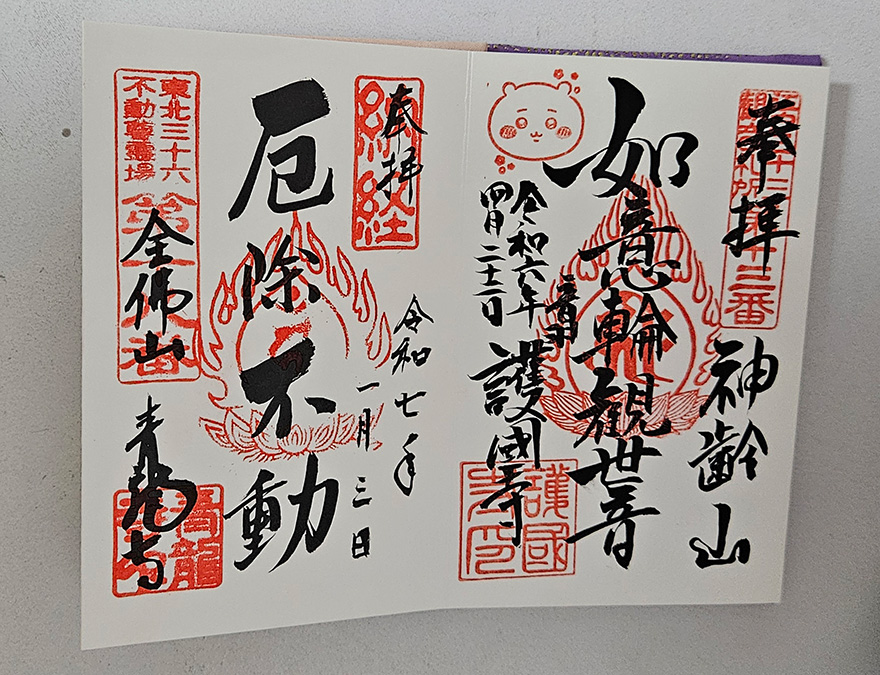 奉拝
十三番
神齡山
如意輪観世音
令和六年
四月二十二日
音羽
護國寺
護國
寺印
奉拝
納経
令和七年
一月三日
厄除不動
東北三十六
不動尊霊場
全佛山
青龍寺
青龍